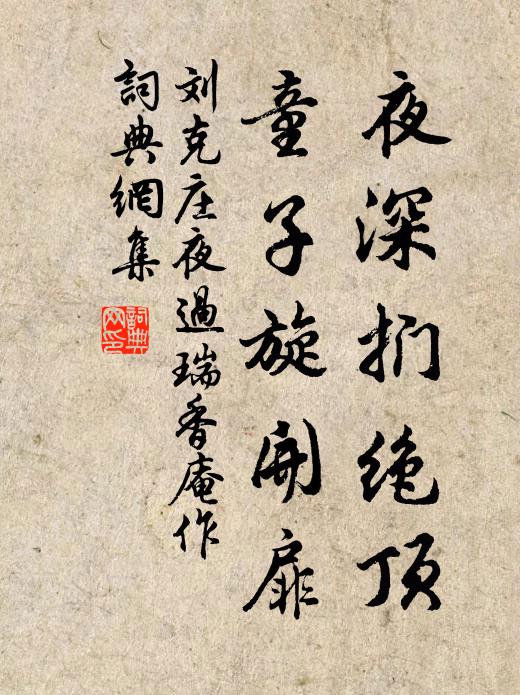 夜深扪绝顶
童子旋開扉
刘克庄夜過瑞香庵作
詞典網集
詞典网印